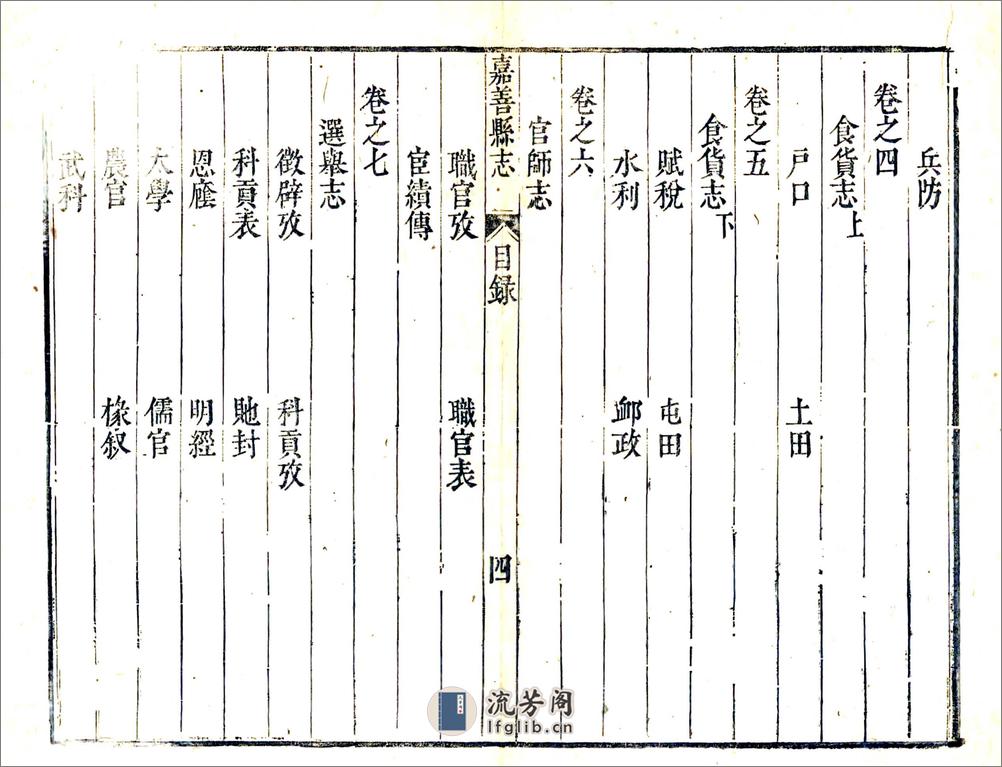 兵防
卷之四
食貨志上
戸口 土田
卷之五
食貨志下
賦稅 屯田
水利 䘏政
卷之六
官師志
嘉善縣志 目録 四
職官攷 職官表
宦績傳
卷之七
選舉志
徵辟攷 科貢攷
科貢表 貤封
恩廕 明經
大學 儒官
農官 椽叙
武科
流芳阁
lfglib.cn